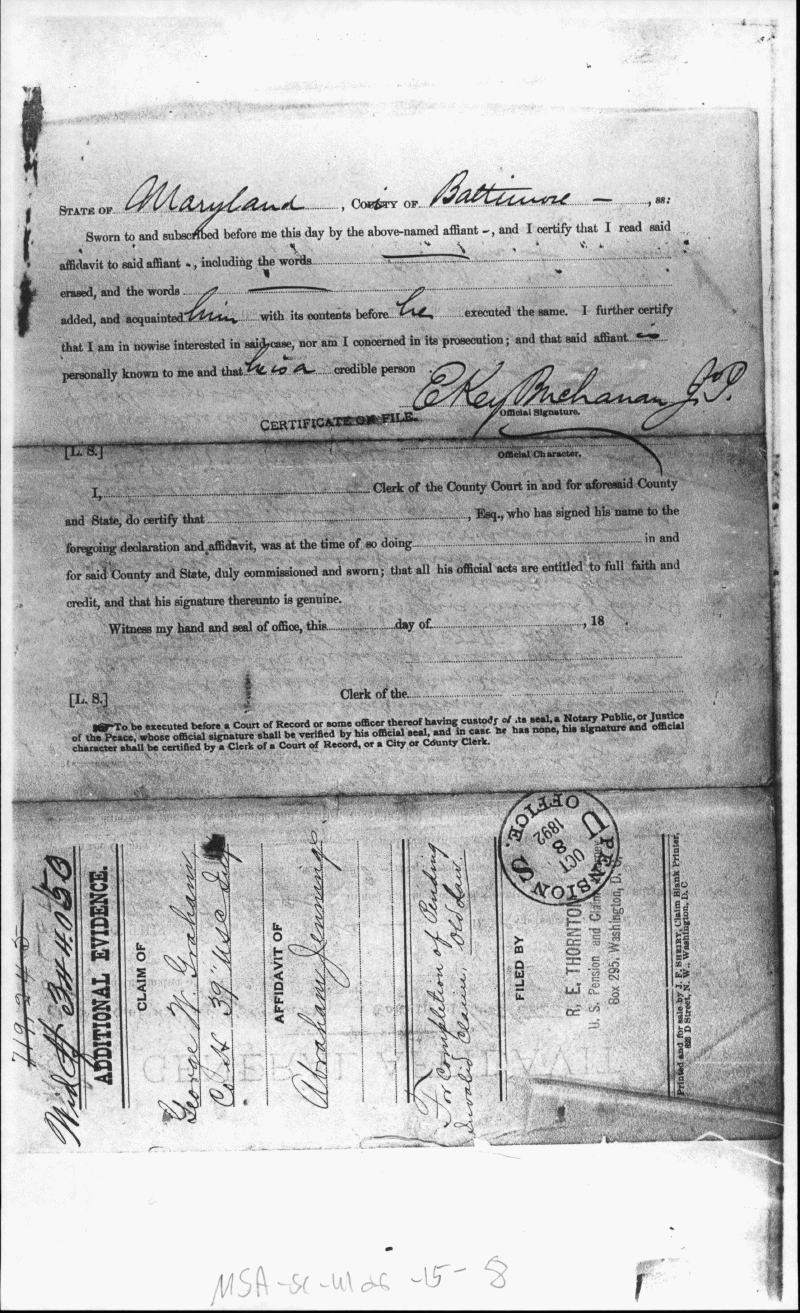 STATE OF Maryland, County OF Baltimore –, ss:
Sworn to and subscribed before me this day by the above-named affiant -, and I certify that I read said
affidavit to said affiant -, including the words
erased, and the words
added, and acquainted him with its contents before he executed the same. I further certify
that I am in nowise interested in said case, nor am I concerned in its prosecution; and that said affiant is
personally known to me and that he is a credible person
E Key Buchanan J.P.
Official Signature.
CERTIFICATE ON FILE.
[L. S.]
Official Character.
I, Clerk of the County Court in and for aforesaid County
and State, do certify that , Esq., who has signed his name to the
foregoing declaration and affidavit, was at the time of so doing in and
for said County and State, duly commissioned and sworn; that all his official acts are entitled to full faith and
credit, and that his signature thereunto is genuine.
Witness my hand and seal of office, this day of , 18 .
[L. S.] Clerk of the
To be executed before a Court of Record or some officer thereof having custody of its seal, a Notary Public, or Justice
of the Peace, whose official signature shall be verified by his official seal, and in case he has none, his signature and official
character shall be certified by a Clerk of a Court of Record, or a City or County Clerk.
344.050
ADDITIONAL EVIDENCE.
CLAIM OF
George W. Graham
Co H 39" USC Inf
AFFIDAVIT OF
Abraham Jennings.
For Completion of Pending
Invalid claim. Old Law.
FILED BY
R. E. THORNTON
U. S. Pension and Claim
Box 295, Washington, D.
U S PENSION OFFICE.
OCT 8 1892
Printed and for sale by J. F. SHEIRY, Claim Blank Printer,
D Street, N. W., Washington, D. C
GENERAL AFFIDAVIT
MSA-SC-4126-15-8